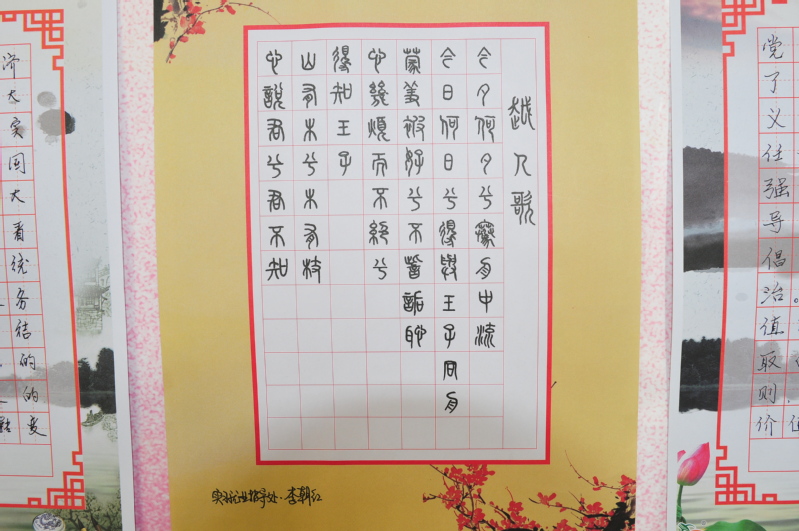 济
大
实
国
大
看
统
务
结
的
的
越人歌
今夕何夕兮搴舟中流
今日何日兮得與王子同舟
蒙羞被好兮不訾詬恥
心幾煩而不絕兮
得知王子
山有木兮木有枝
心說君兮君不知
实习就业指导处·李朝红
党
了
义
任
强
导
倡
治。
值
取
则
价值